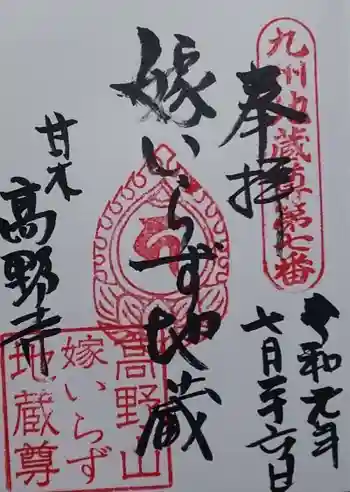 九州地蔵尊第七番
奉拝
令和元年
七月二十六日
嫁いらず地蔵
甘木
高野寺
高野山
嫁いらず
地蔵尊